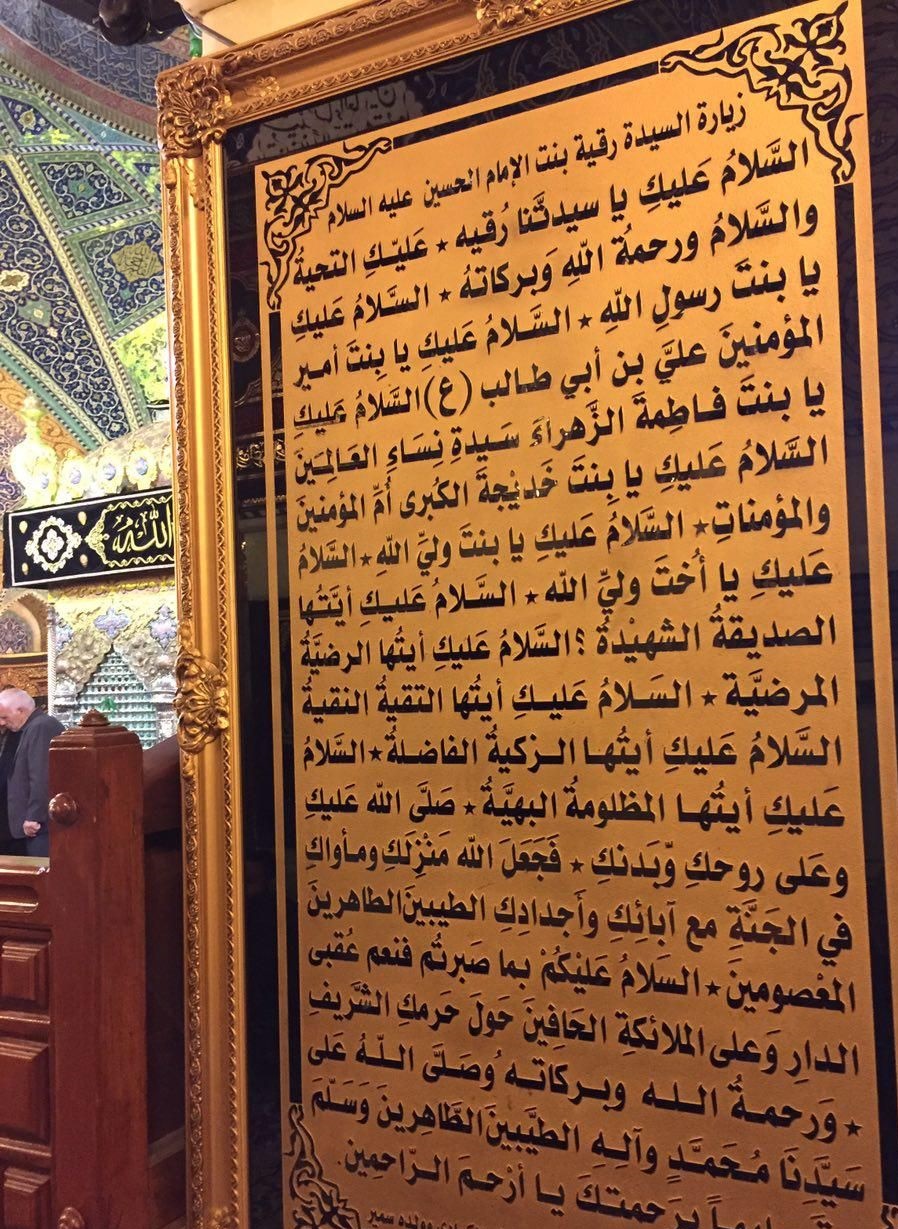 زيارة السيدة رقية بنت الإمام الحسين عليه السلام
السَّلامُ عَليكِ يا سيدتَّنا رُقيه ★ عَليّكِ التحيةُ
والسَّلامُ ورحمةُ اللهِ وَبركاتهُ ★ السَّلامُ عَليكِ
يا بنتَ رسولِ اللهِ ★ السَّلامُ عَليكِ يا بِنتَ أمير
المؤمنينَ عليَّ بن أبي طالب (ع) السَّلامُ عَليكِ
يا بنتَ فاطِمةَ الزَّهراءَ سَيدةِ نِساءِ العَالمِينَ
السَّلامُ عَليكِ يا بِنتَ خَديْجةَ الكُبرى أُمِّ المؤمنينَ
والمؤمناتِ ★ السَّلامُ عَليكِ يا بنتَ وليِّ اللهِ ★ السَّلامُ
عَليكِ يا أُختَ وليِّ الله ★ السَّلامُ عَليكِ أيَّتُها
الصديقةُ الشهيْدةُ ؟ السَّلامُ عَليكِ أيتُها الرضيَّةُ
المرضيَّة ★ السَلامُ عَليكِ أيتُها التقيةُ النقيةُ
السَّلامُ عَليكِ أيتُها الزكيةُ الفاضلةُ ★ السَّلامُ
عَليكِ أيتُها المظلومةُ البهيَّةُ ★ صَلَّى الله عَليكِ
وعَلى روحكِ وّبَدنكِ ★ فَجَعَلَ الله مَنْزِلَكِ ومأواكِ
في الجَنَّةِ مع آبائِكِ وأجدادِكِ الطيبينَ الطاهرينَ
المعْصومينَ ★ السَلامُ عَليْكُمْ بما صَبرتُم فنعم عُقبى
الدارِ وَعلى الملائكةِ الحَافِينَ حَولَ حَرمكِ الشَّريفِ
★ وَرحمةُ الله وبركاته وُصَلَّى اللهُ عَلى
سَيَّدَنَا مُحَمَّدٍ وآلِهِ الطيَّبينَ الطَّاهِرينَ وَسَلَّمَ
بَرحَمتكَ يا أرْحمَ الرَّاحمِين
وولده سمير
الله